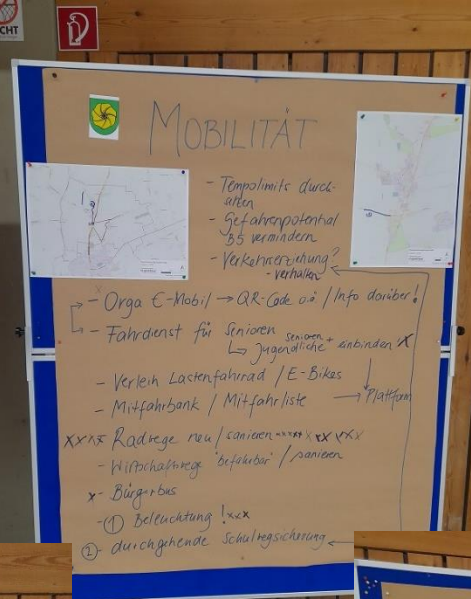 CHT
MOBILITÄT
- Tempolimits durch-
- Gefahrenpotential
B5 vermindern
- Verkehrserziehung?
- verhalten
- Orga E-Mobil → QR-Code o.ä / Info darüber!
- Fahrdienst für Senioren
Senioren +
↳ Jugendliche einbinden X
- Verleih Lastenfahrrad / E-Bikes
- Mitfahrbank / Mitfahrliste → Plattform
xxxx Radwege neu / sanieren xxxx x xx xxx
- Wirtschaftswege "befahrbar" / sanieren
x - Bürgerbus
- ① Beleuchtung! xxx
② - durchgehende Schulwegsicherung